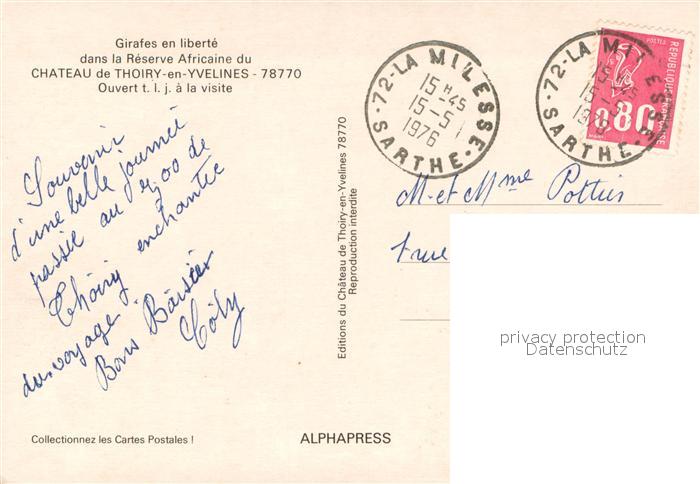 Girafes en liberté
dans la Réserve Africaine du
CHATEAU de THOIRY-en-YVELINES - 78770
Ouvert t. l. j. à la visite
Souvenir
d'une belle journée
passée au zoo de
Thoiry enchantée
du voyage.
Bons Baisers
Editions du Château de Thoiry-en-Yvelines 78770
Reproduction interdite
72-LA MILESSE
15 H 45
15-5
1976
SARTHE
72-LA MILESSE
15 H 45
15-5
1976
SARTHE
REPUBLIQUE FRANCAISE
0,80
M- et Mme Pottier
1 rue
privacy protection
Datenschutz
Collectionnez les Cartes Postales !
ALPHAPRESS